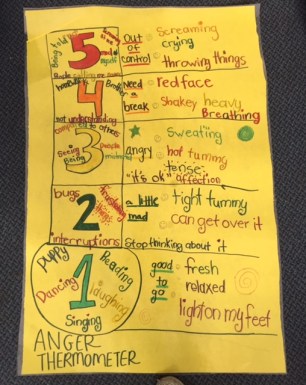 5
Out
of
control
Screaming
crying
throwing things
4
Need
a
break
red face
Shakey heavy
Breathing
not understanding
to others
3
Seeing people
Being
angry
"it's ok"
Sweating
hot tummy
tense
affection
bugs
2
interruptions
a little
mad
tight tummy
can get over it
Stop thinking about it
puppy
Reading
Dancing
1
laughing
Singing
good
to
go
fresh
relaxed
light on my feet
ANGER
THERMOMETER